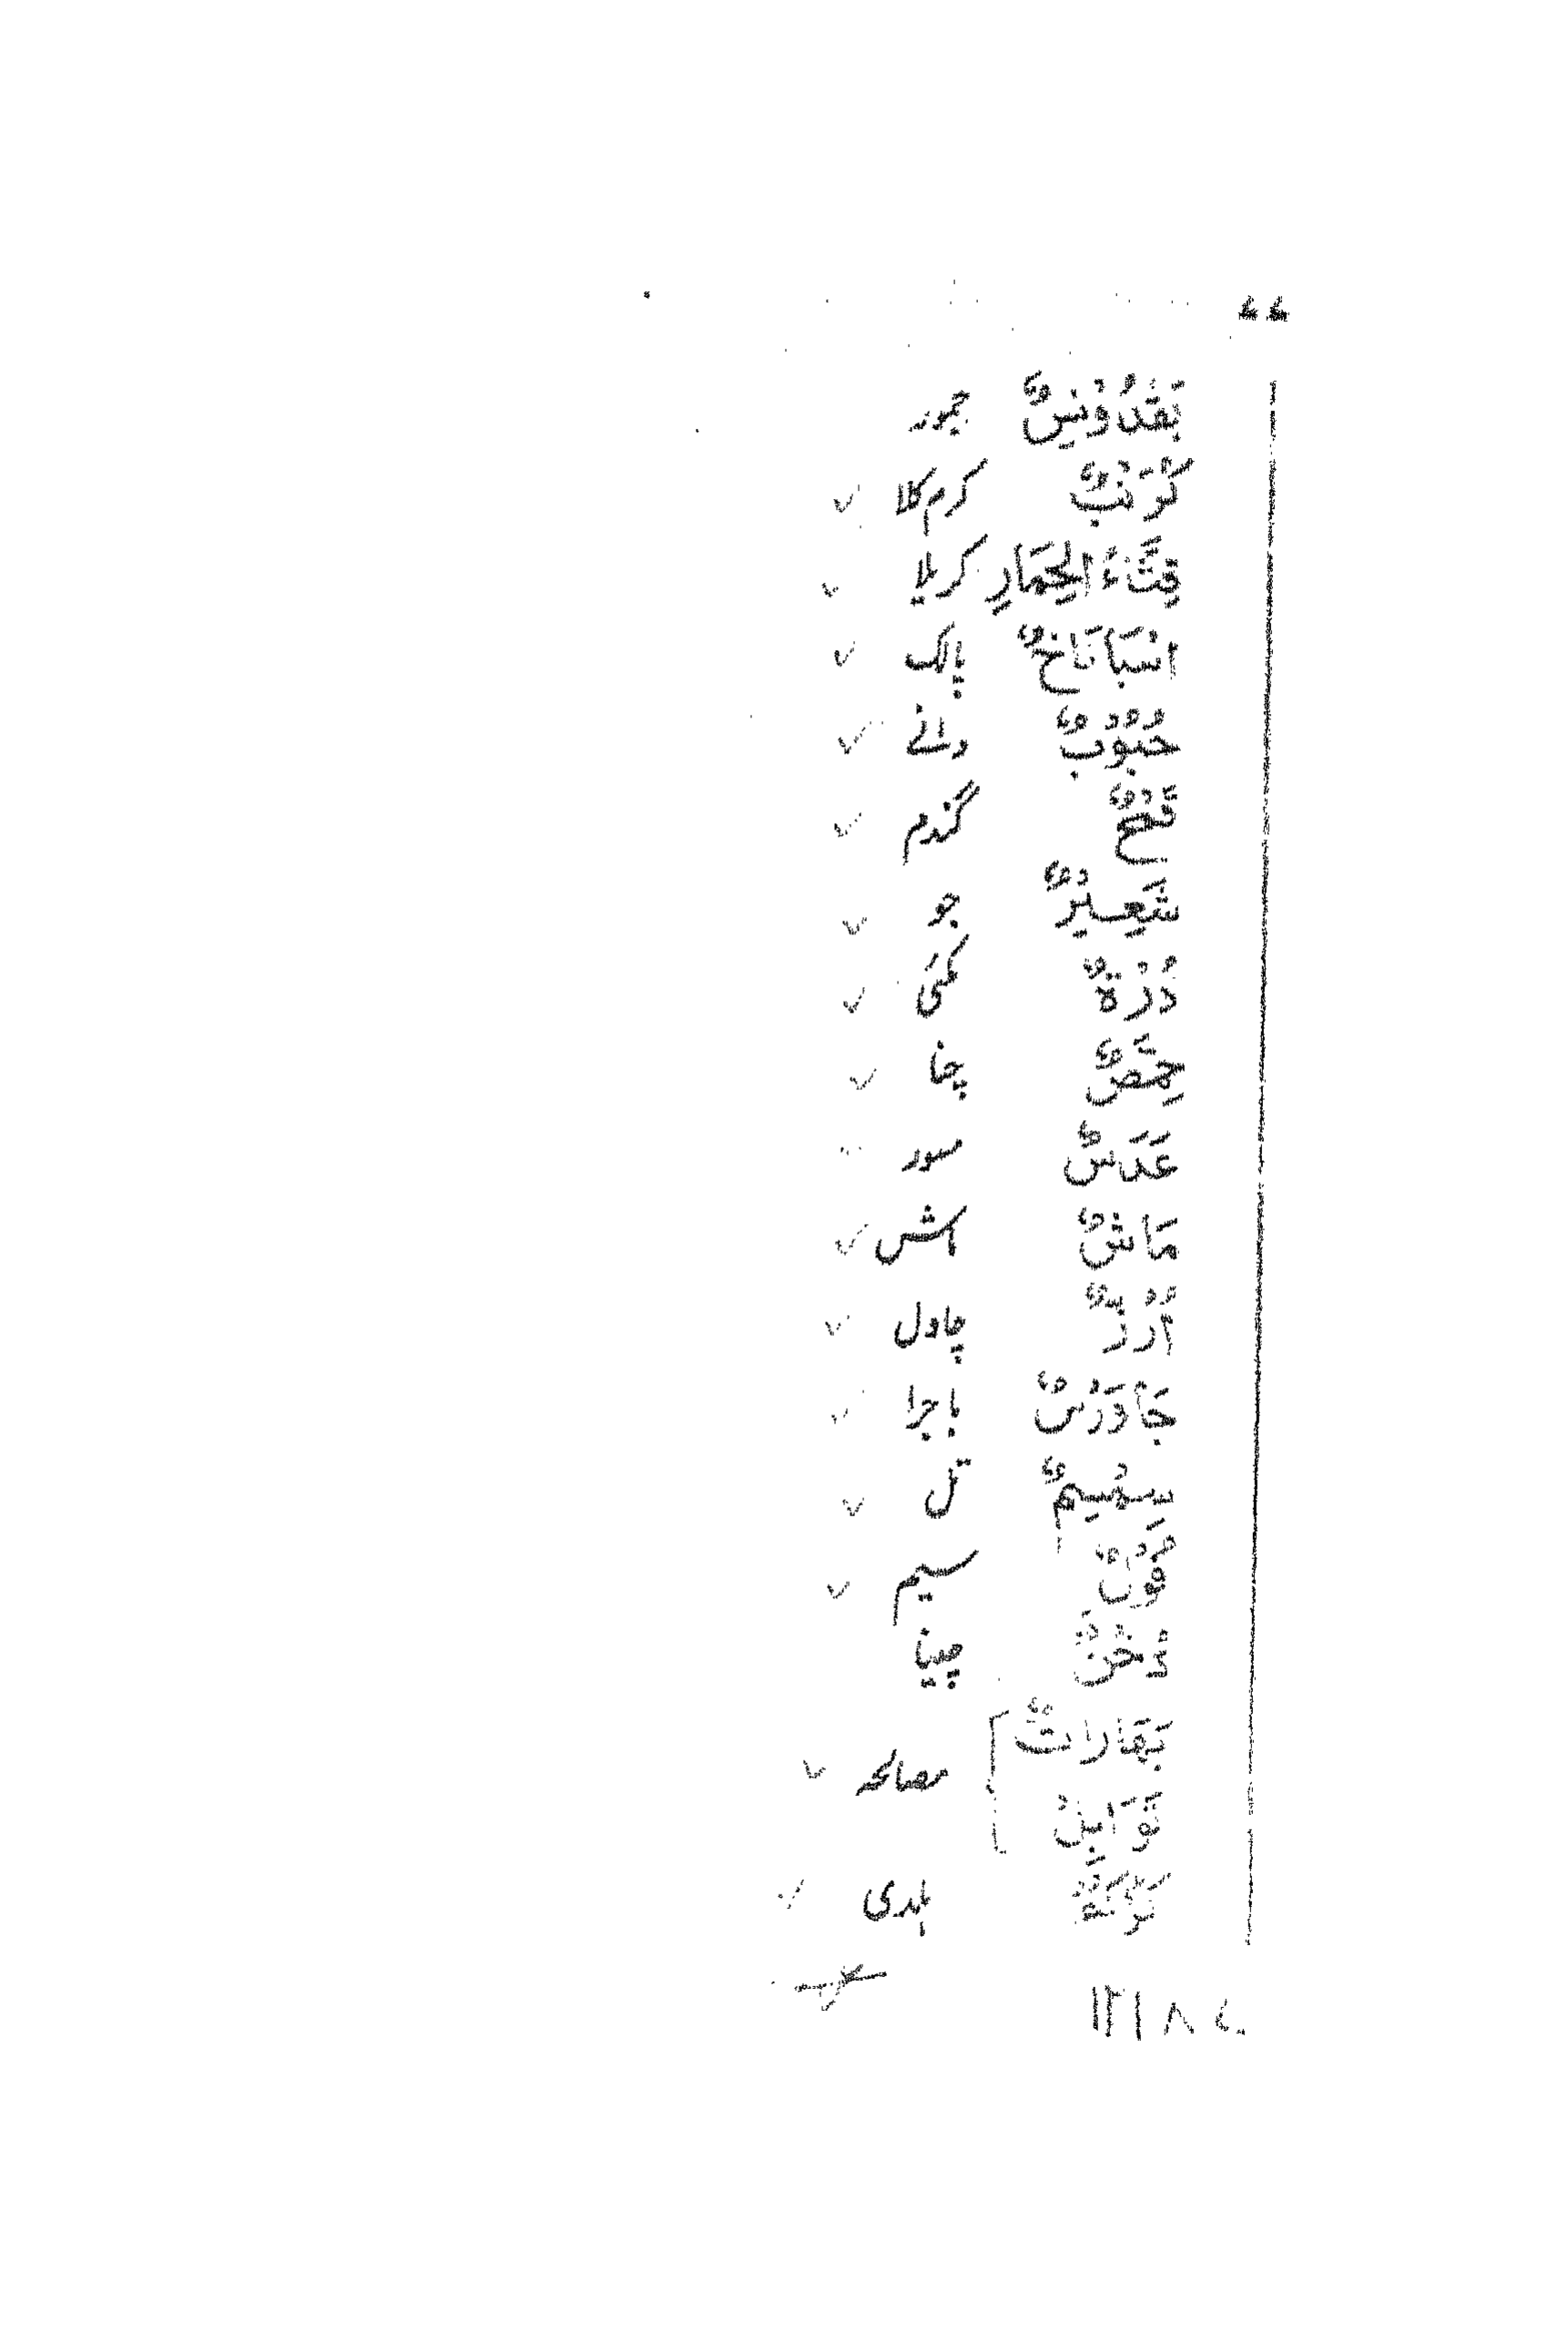 ۷۷
بَقْدُوْنِسٌ جمور
کُرْنَبٌ کرم کلا
قِثَّاءُ الْحِمَارِ کریلا
اسْبَانَاخٌ پالک
حُبُوْبٌ دانے
قَمْحٌ گندم
شَعِیْرٌ جو
ذُرَةٌ مکئی
حِمَّصٌ چنا
عَدَسٌ مسور
مَاشٌ ماش
اُرُزٌّ چاول
جَاوَرْسٌ باجرا
سِمْسِمٌ تل
فُوْلٌ سیم
دُخْنٌ چینا
بَہَارَاتٌ
تَوَابِلُ مصالحہ
ہلدی